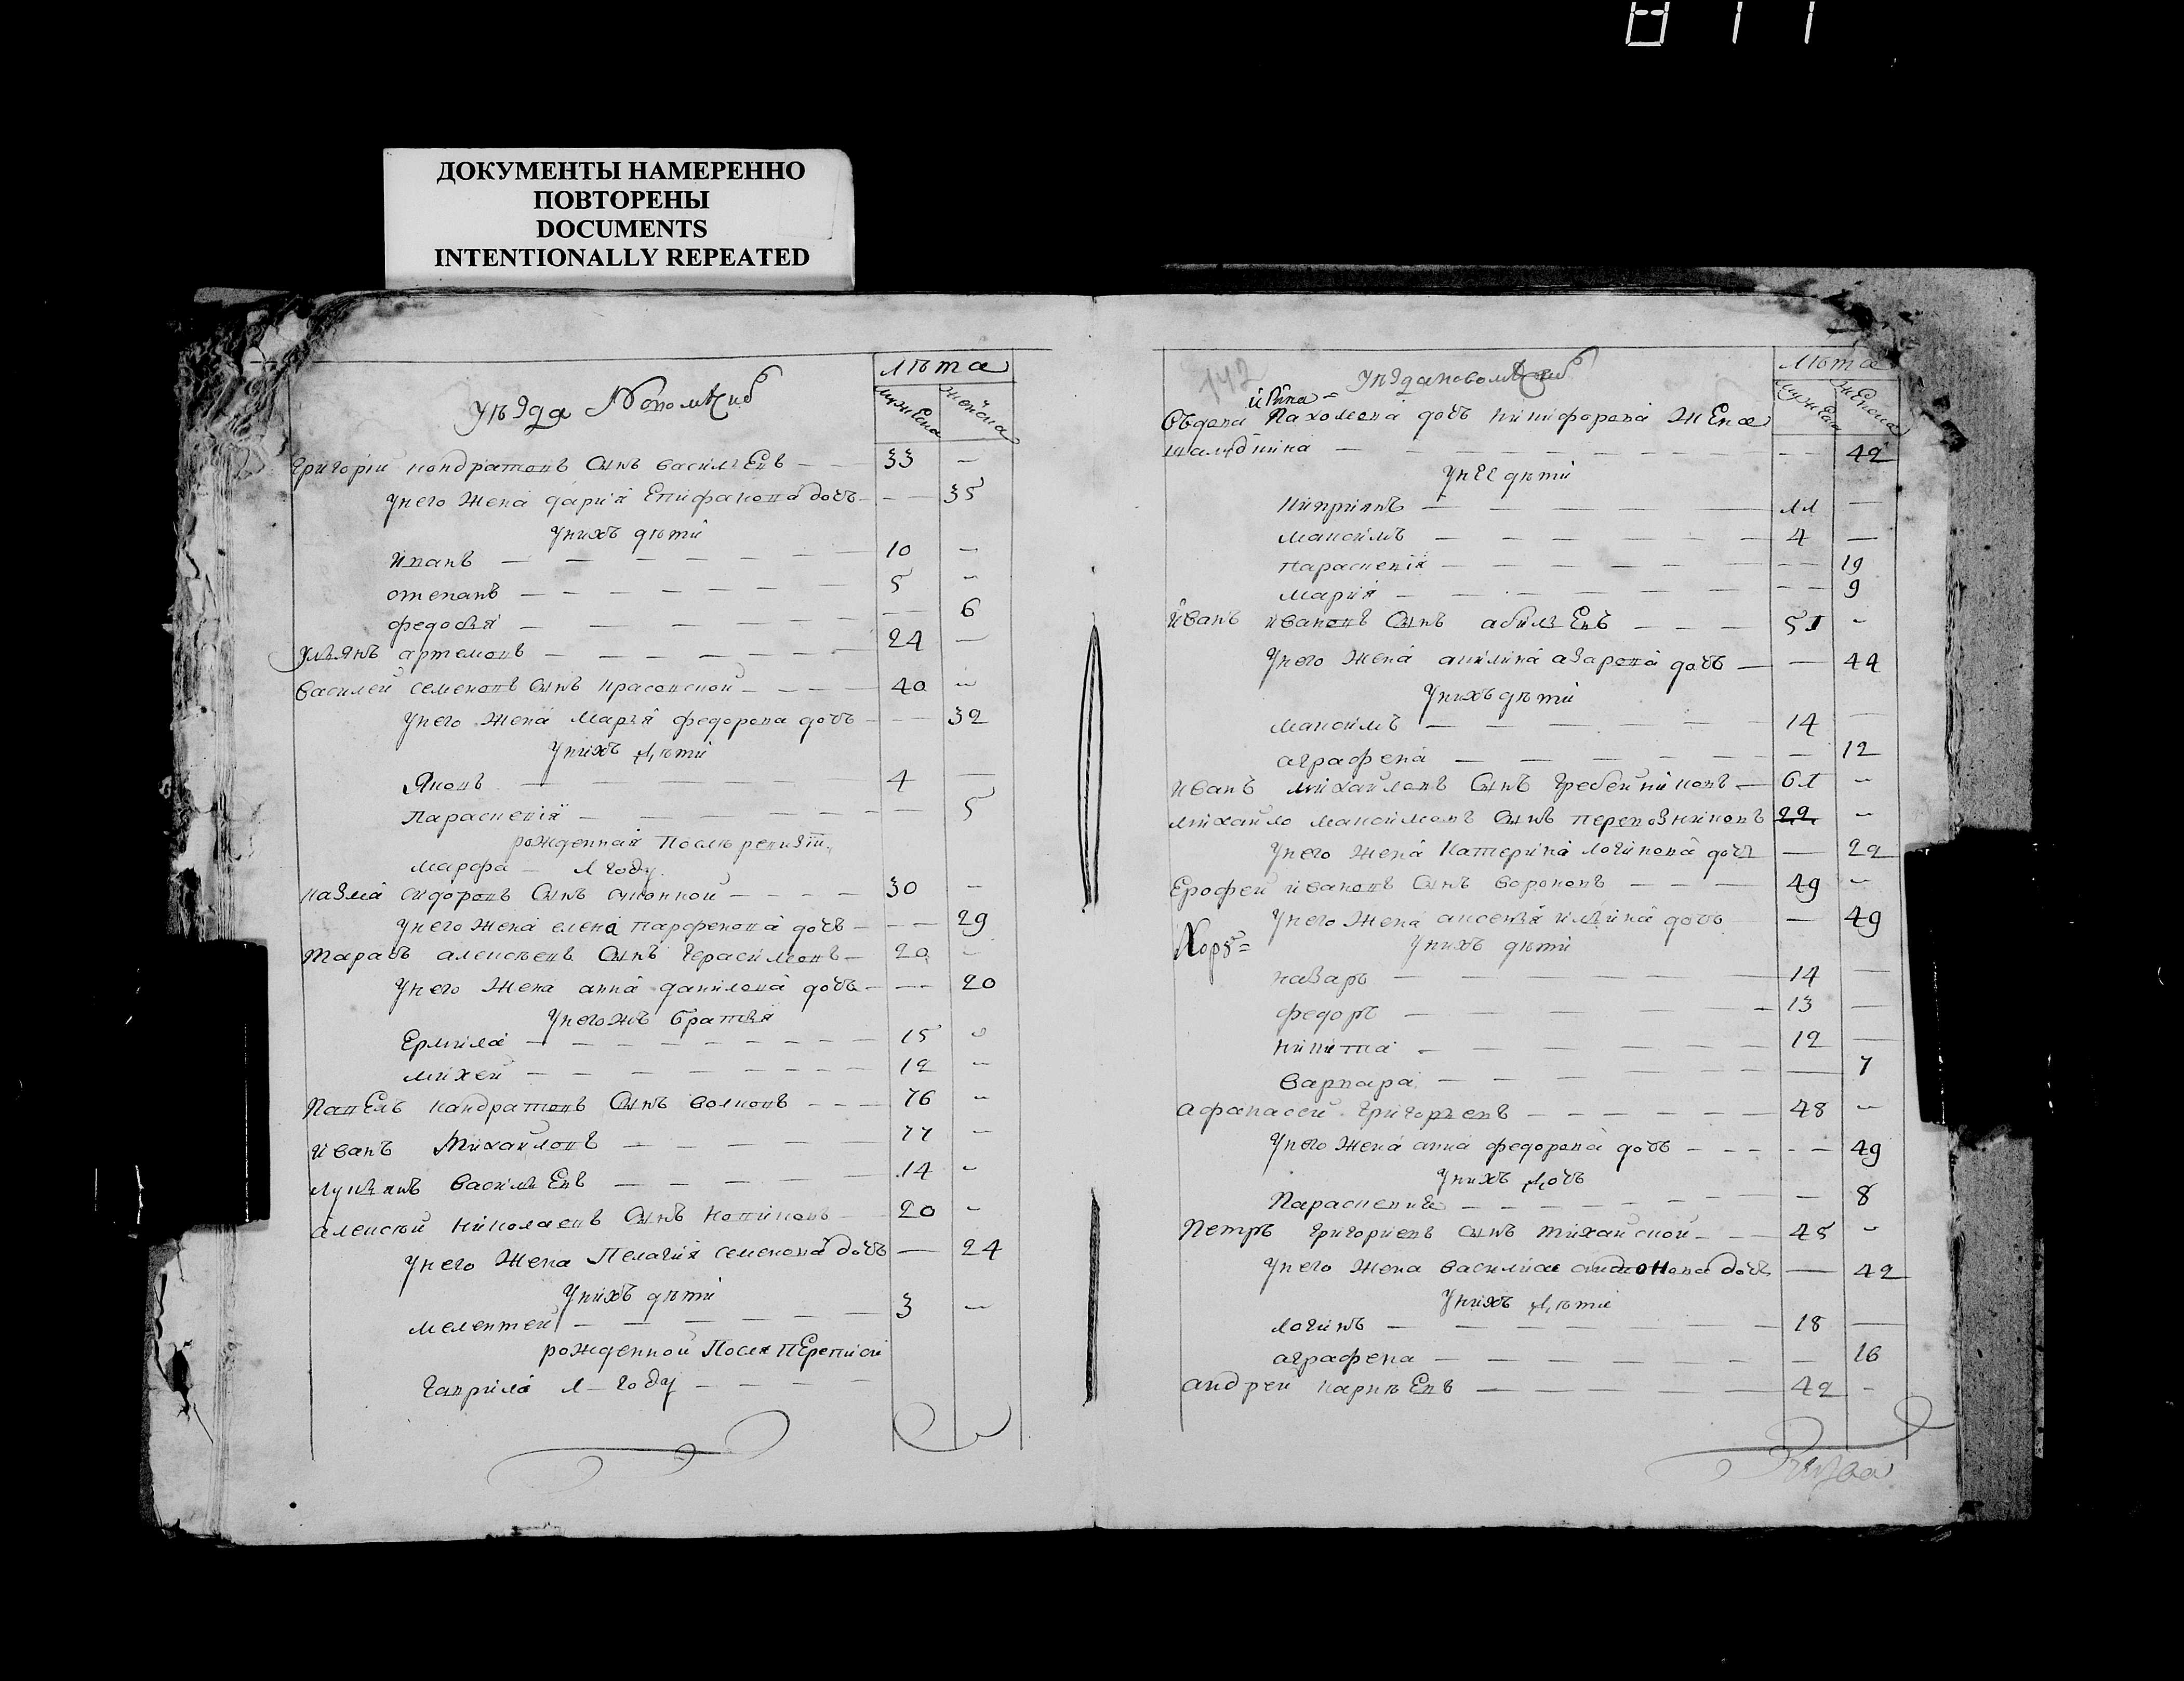 811
ДОКУМЕНТЫ НАМЕРЕННО
ПОВТОРЕНЫ
DOCUMENTS
INTENTIONALLY REPEATED
уѣзда
лѣта
мужеска женска
Григорій кондратовъ сынъ васильевъ 33 —
унего жена дарія Епифанова дочь — 35
унихъ дѣти
иванъ 10 —
степанъ 5 —
федосья — 6
ульянъ артемовъ 24 —
василей семеновъ сынъ красовской 40 —
унего жена марья федорова дочь — 32
унихъ дѣти
Яковъ 4 —
Параскевія — 5
рожденная послѣ ревизіи
марфа 1 году
казма сидоровъ сынъ 30 —
унего жена елена парфенова дочь — 29
тарасъ алексѣевъ сынъ герасимовъ 20 —
унего жена анна данилова дочь — 20
унегожъ братья
Ермила 15 —
михей 12 —
павелъ кандратовъ сынъ волковъ 76 —
иванъ михайловъ 77 —
лукьянъ васильевъ 14 —
алексѣй николаевъ сынъ новиковъ 20 —
унего жена Пелагия семенова дочь — 24
унихъ дѣти
мелентей 3 —
рожденной после переписи
гаврила 1 году
142
лѣта
мужеска женска
вдова Пахомова дочь никифорова жена
— 42
унее дѣти
киприянъ 11 —
максимъ 4 —
параскевія — 19
марія — 9
иванъ ивановъ сынъ абильевъ 51 —
унего жена акилина азарова дочь — 44
унихъ дѣти
максимъ 14 —
аграфена — 12
иванъ михайловъ сынъ гребенниковъ 61 —
михайло максимовъ сынъ перевозниковъ 22 —
унего жена катерина логинова дочь — 22
Ерофей ивановъ сынъ вороновъ 49 —
унего жена аксенья ильина дочь — 49
унихъ дѣти
назаръ 14 —
федоръ 13 —
никита 12 —
варвара — 7
афанасей григорьевъ 48 —
унего жена анна федорова дочь — 49
унихъ дочь
Параскевия — 8
Петръ григориевъ сынъ михайской 45 —
унего жена василиса дочь — 42
унихъ дѣти
логинъ 18 —
аграфена — 16
андрей карнѣевъ 42 —